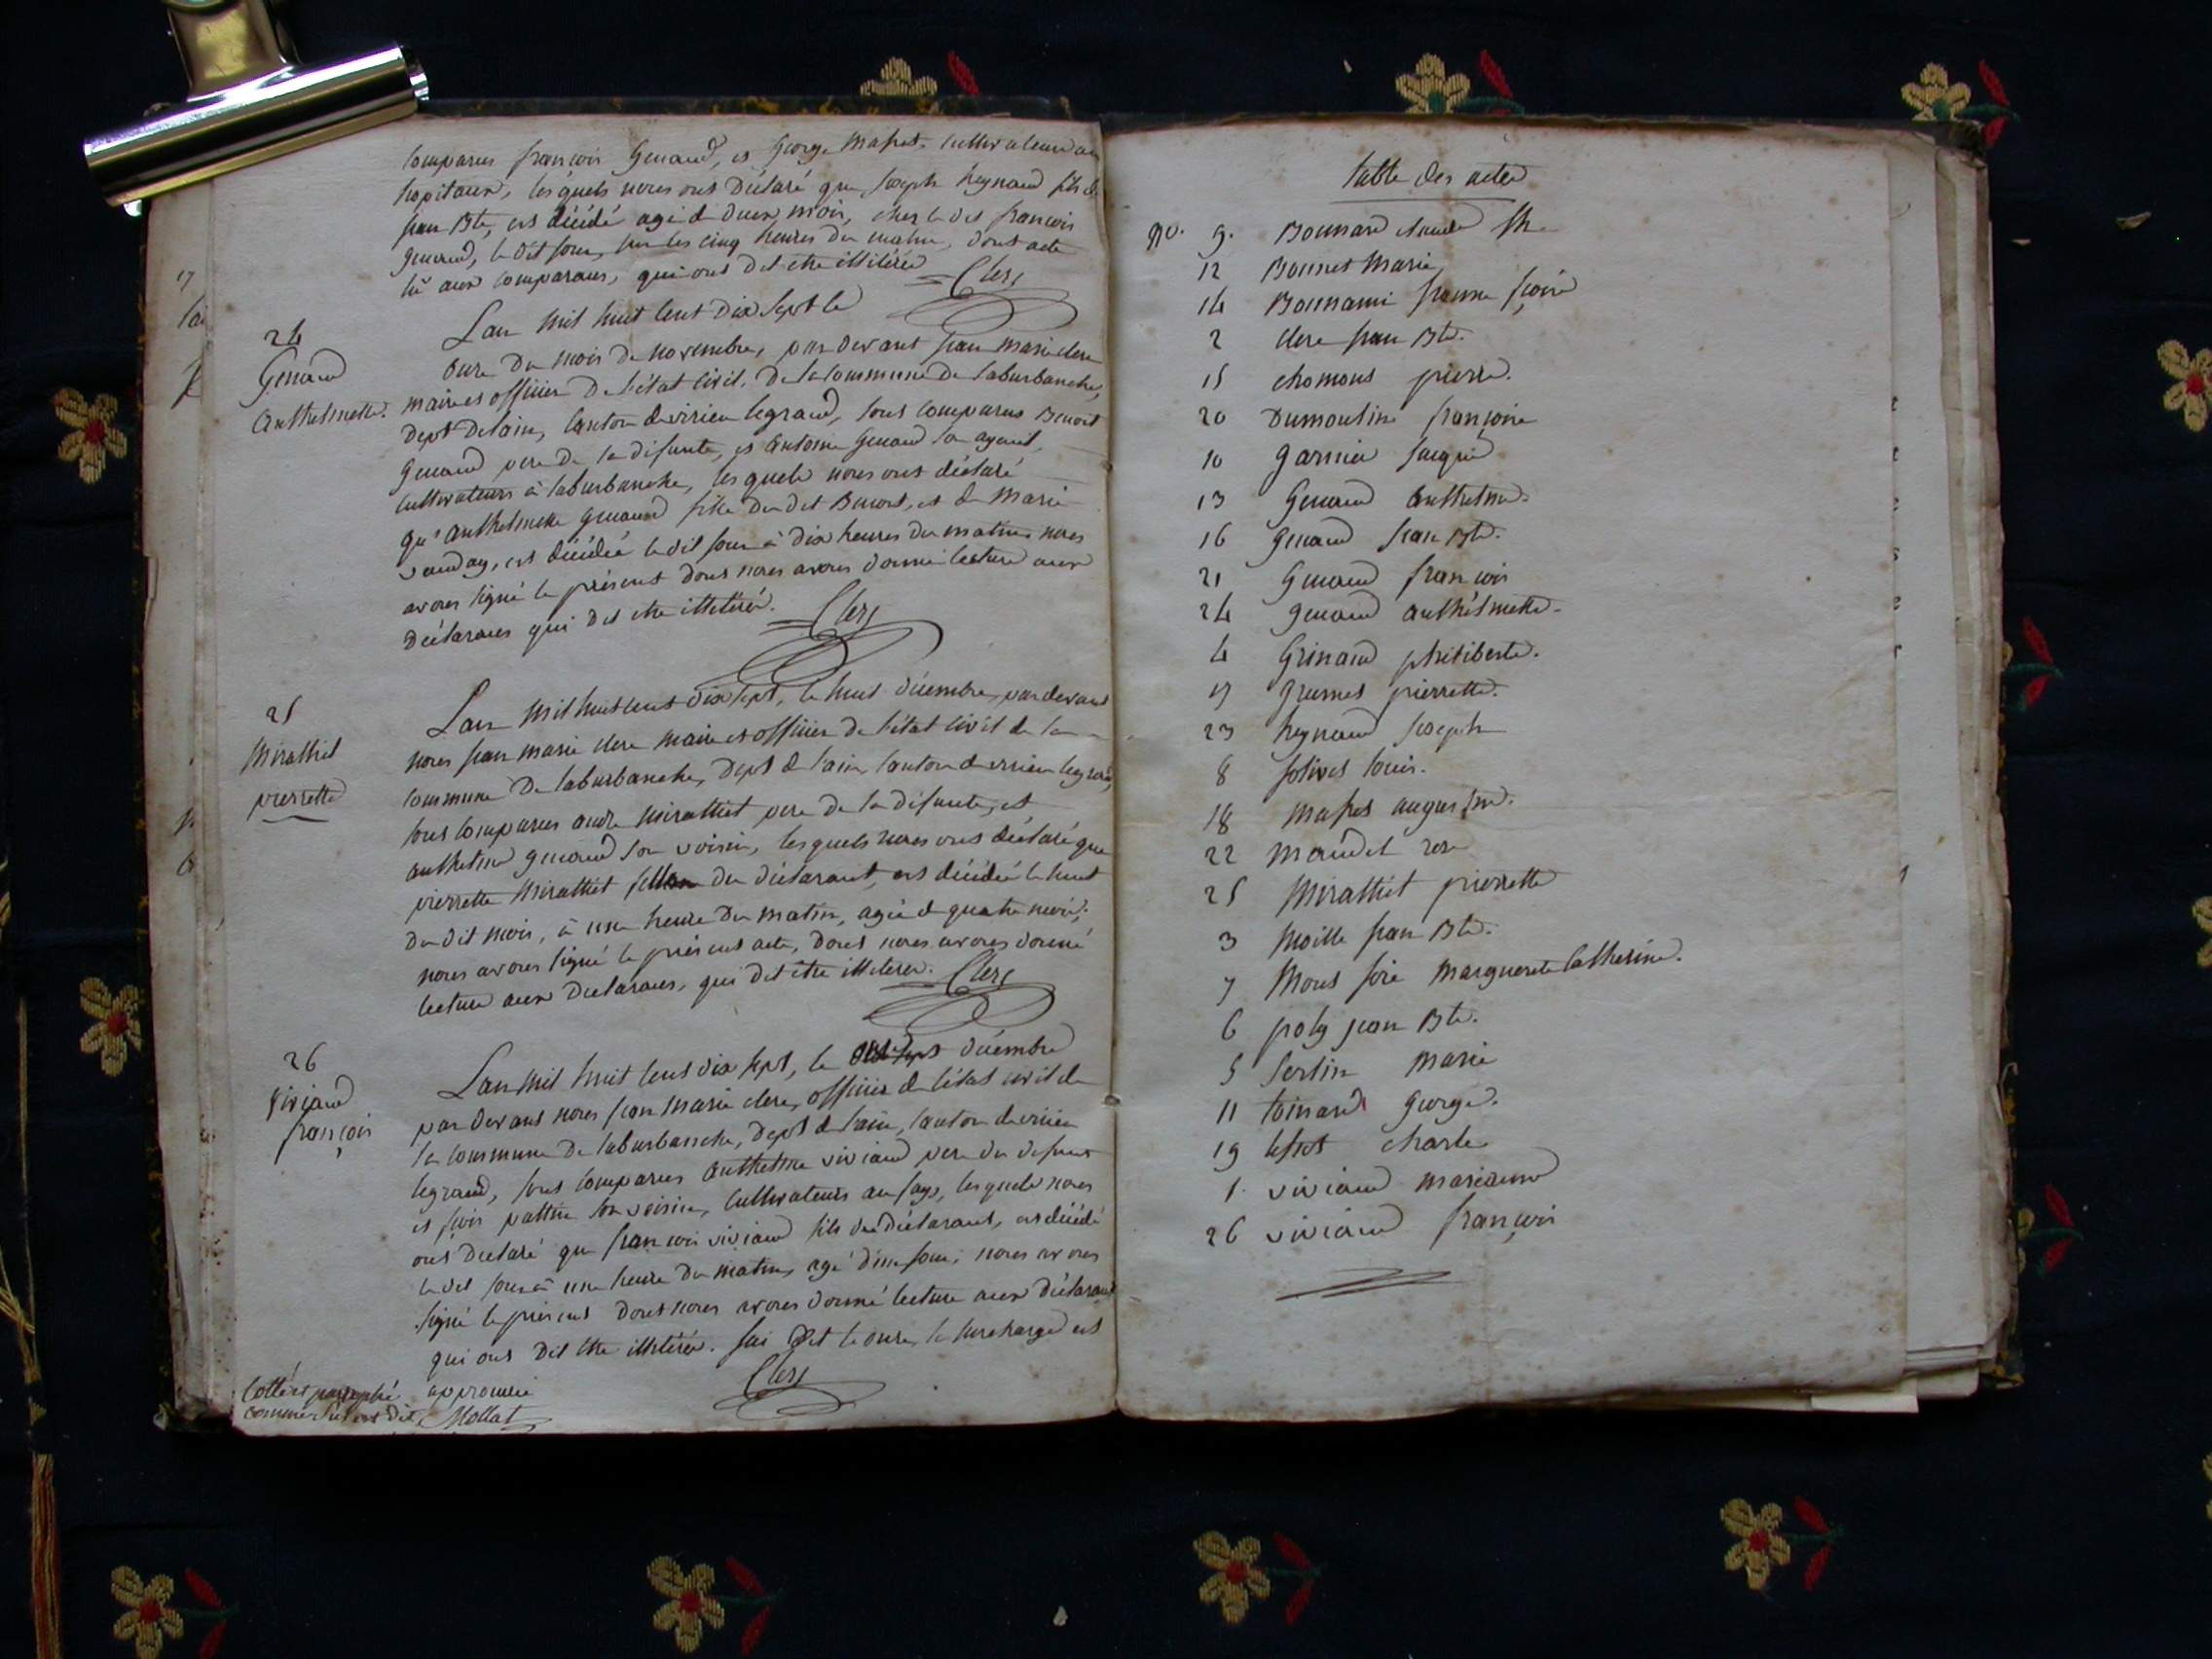 comparus françois Genaud, et George Masset, cultivateurs au
hopitaux, lesquels nous ont déclaré que joseph heynaud fils de
jean Bte, est décédé agé de deux mois, chez le dit francois
genaud, le dit jour, sur les cinq heures du matin, dont acte
lu aux comparans, qui ont dit etre illitéré Clerc
24
Genaud
anthelmette.
Lan mil huit cent dix sept le
onze du mois de novembre, par devant jean marie clerc
maire et officier de l'état civil, de la commune de laburbanche,
dept. delain, canton de virieu legrand, sont comparus Benoit
Genaud pere de la défunte, et antoine Genaud son ayeul,
cultivateurs à laburbanche, lesquels nous ont déclaré
qu'anthelmette genaud fille du dit Benoit, et de marie
vauday, est décédée le dit jour à dix heures du matin nous
avons signé le présent dont nous avons donné lecture aux
déclarans qui dit etre illitéré. Clerc
25
Miralliet
pierrette
Lan mil huit cent dix sept, le huit décembre, par devant
nous jean marie clerc maire et officier de l'état civil de la
commune de laburbanche, dept de l'ain, canton de virieu legrand,
sont comparus andre mirallict pere de la défunte, et
anthelme genaud son voisin, lesquels nous ont déclaré que
pierrette Mirallict fille du déclarant, est décédée le huit
du dit mois, à une heure du matin, agée de quatre mois;
nous avons signé le présent acte, dont nous avons donné
lecture aux declarans, qui dit etre illiterés. Clerc
26
viviand
françois
Lan mil huit cent dix sept, le décembre
par devant nous jean marie clerc, officier de l'état civil de
la commune de laburbanche, dept de l'ain, canton de virieu
legrand, sont comparus anthelme viviand pere du defunt
et fçois son voisin, cultivateurs au fays, lesquels nous
ont declaré que francois viviand fils du déclarant, est décédé
le dit jour à une heure du matin, agé d'un jour; nous avons
signé le présent dont nous avons donné lecture aux déclarans
qui ont dit etre illitérés. la surcharge est
approuvée Clerc
Cotté et paraphé
comme dit, Mollat
table des actes
No. 9. Bonnard claude
12 Bonnet Marie
14 Bonnami jeanne fçoise
2 clerc jean Bte.
15 chomont pierre.
20 Dumoulin françoise
10 garnier jacques
13 Genaud anthelme.
16 genaud jean Bte.
21 Genaud françois
24 genaud anthelmette.
4 Grinand philiberte.
17 grumet pierrette.
23 heynaud joseph
8 jolivet louis.
18 masset augustine.
22 maudet rose
25 Mirallict pierrette
3 Moille jean Bte.
7 Mont joie marguerite catherine.
6 poly jean Bte.
5 Sertin marie
11 toinard George.
19 charle
1. viviand marianne
26 viviand françois